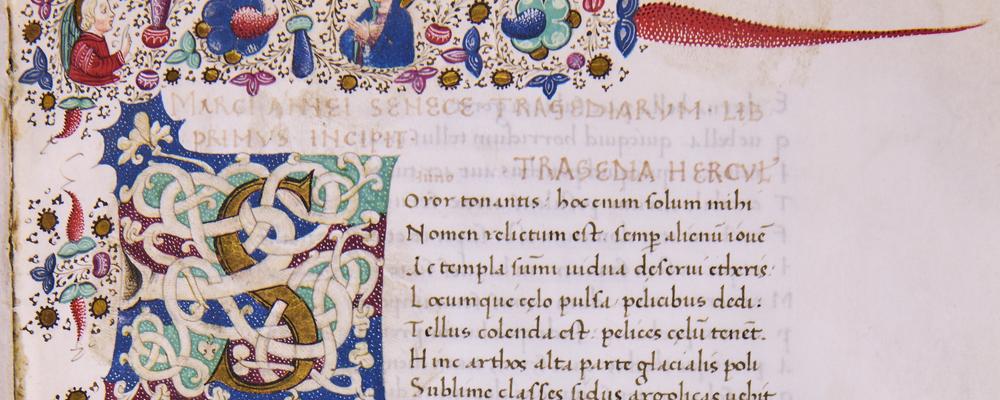 MARCI ANNEI SENECE TRAGEDIARVM LIB
PRIMVS INCIPIT
TRAGEDIA HERCVL'
iuno
Soror tonantis: hoc enim solum mihi
Nomen relictum est: semp̱ alienū iouē
Ac templa sūmi uidua deserui etheris.
Locumque celo pulsa pelicibus dedi:
Tellus colenda est: pelices celū tenēt.
Hinc arthos alta parte glacialis poli
Sublime classes sidus argolicas uehit